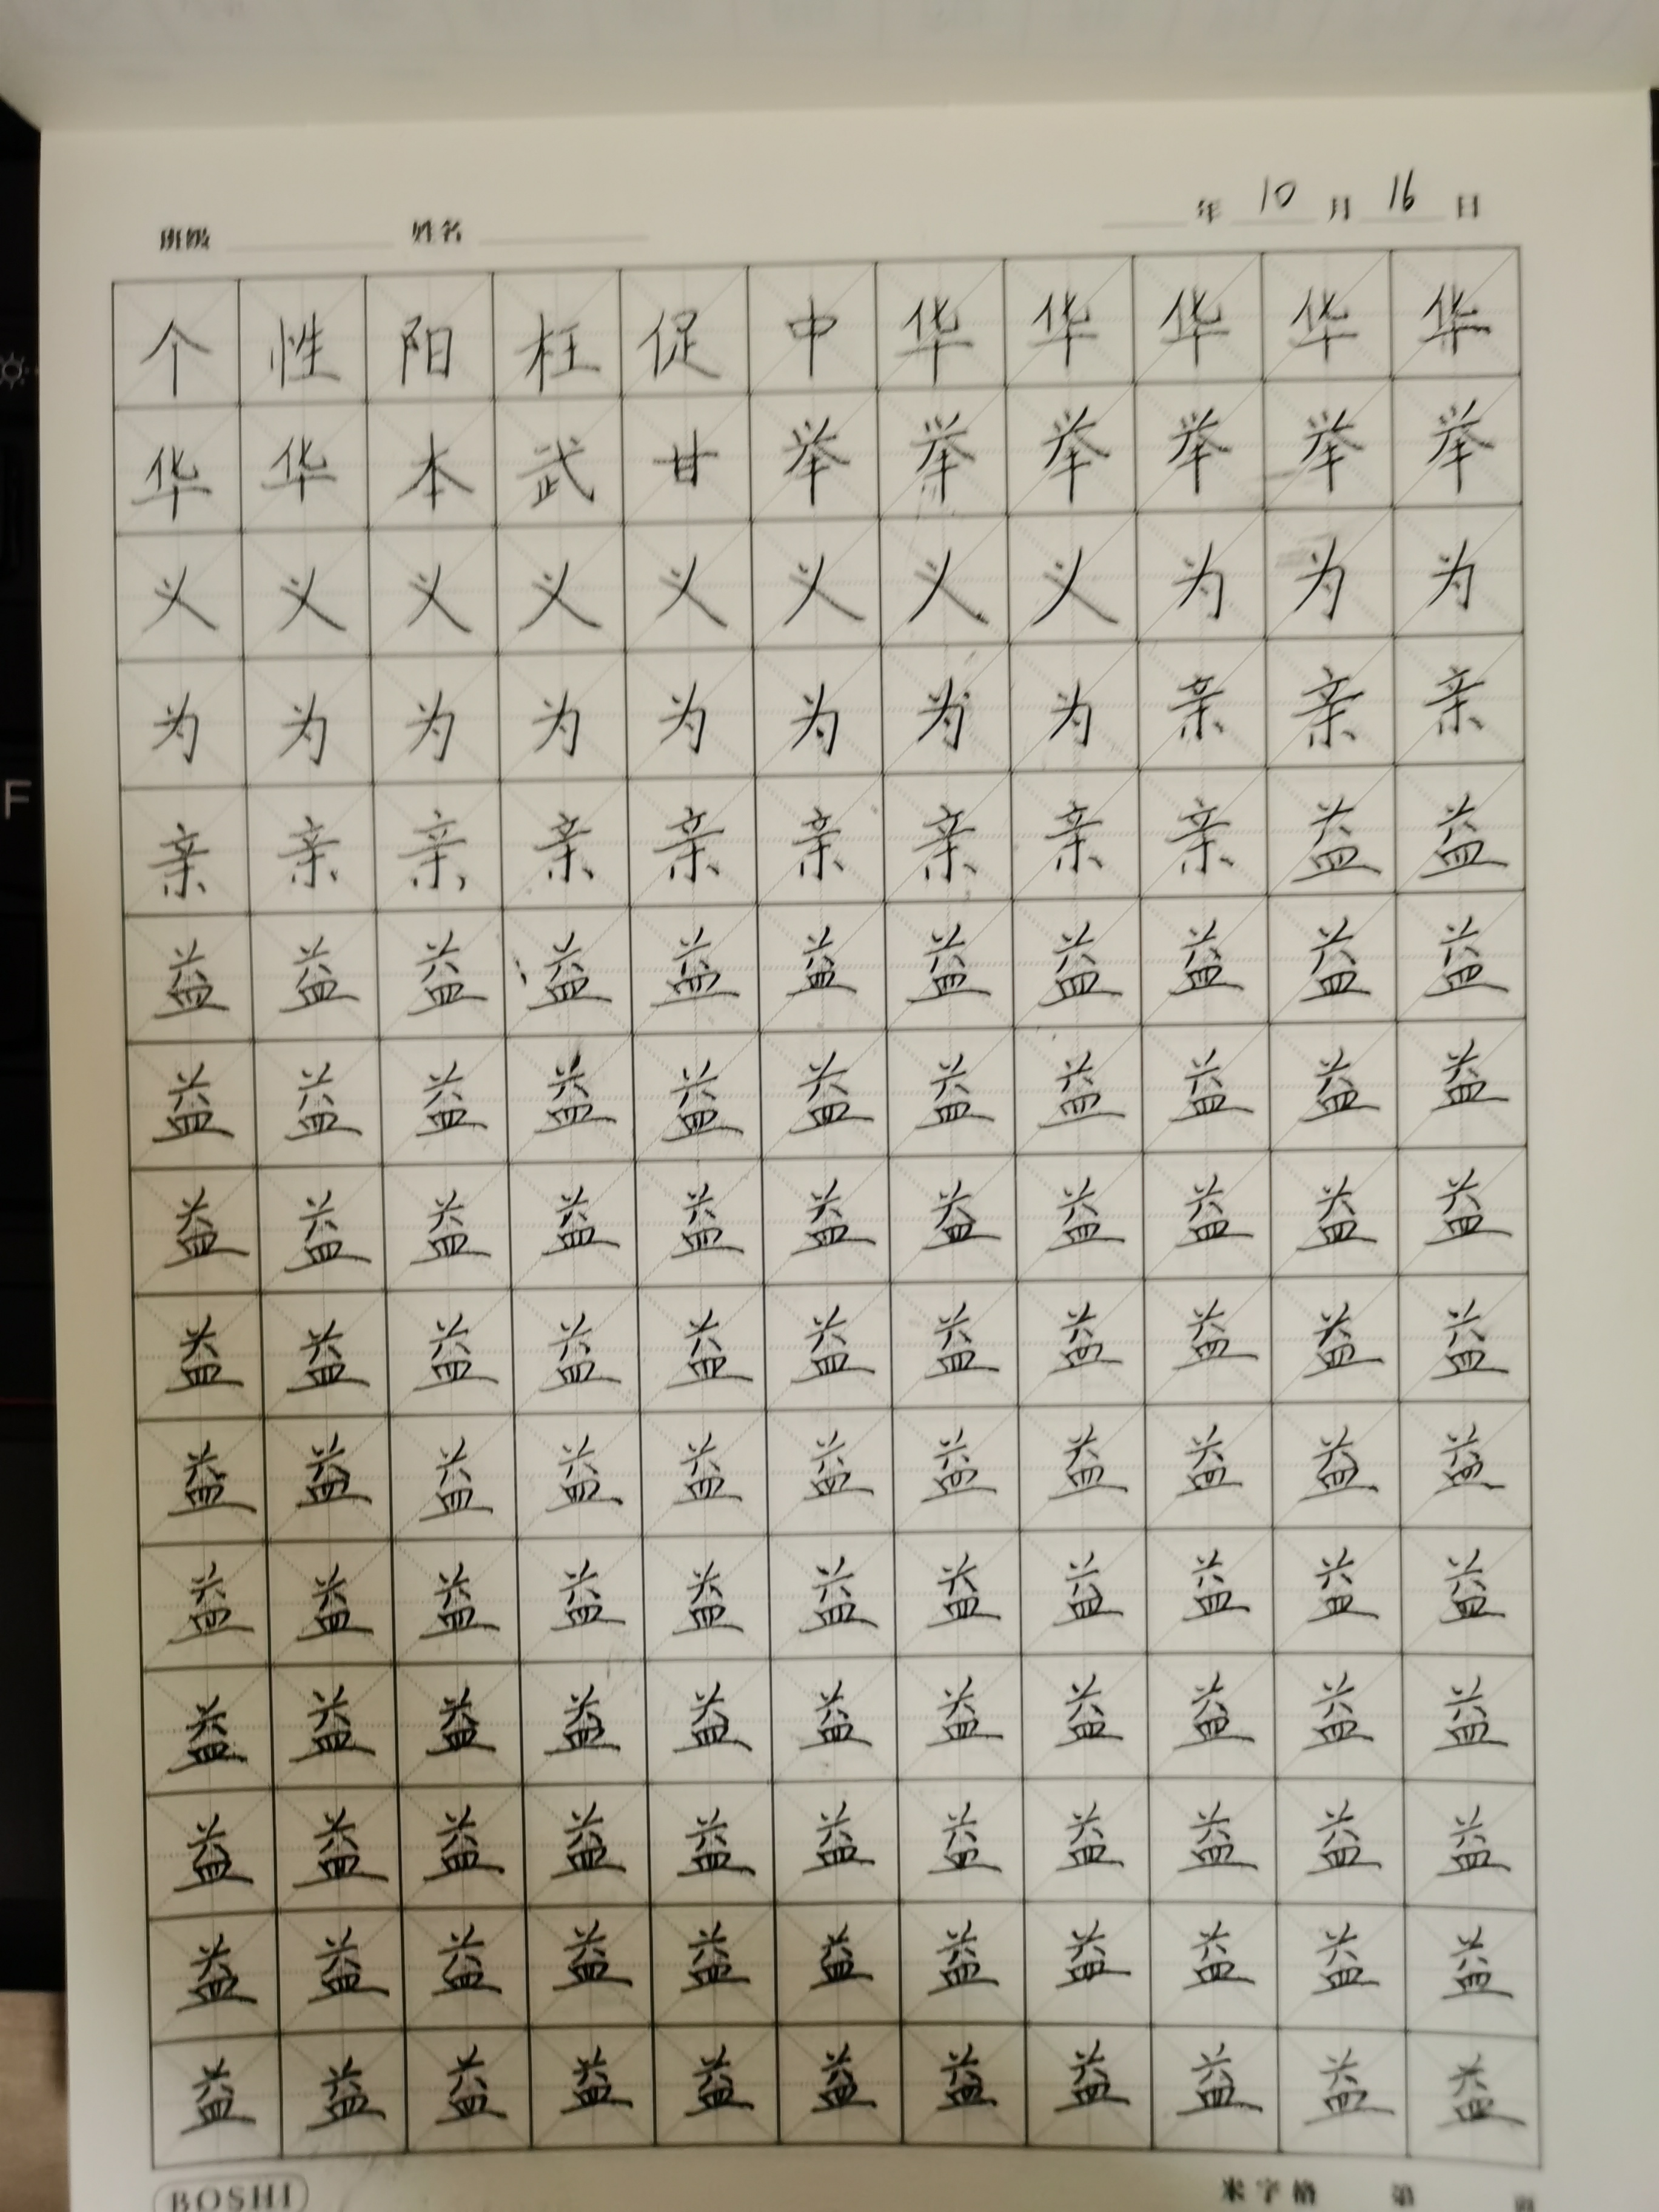 年 10 月 16 日
班级 姓名
个性阳枉促中华华华华华
华华本武甘举举举举举举
义义义义义义义义为为为
为为为为为为为为亲亲亲
亲亲亲亲亲亲亲亲亲益益
益益益益益益益益益益益
益益益益益益益益益益益
益益益益益益益益益益益
益益益益益益益益益益益
益益益益益益益益益益益
益益益益益益益益益益益
益益益益益益益益益益益
益益益益益益益益益益益
益益益益益益益益益益益
益益益益益益益益益益益
BOSHI 米字格 第 页
F